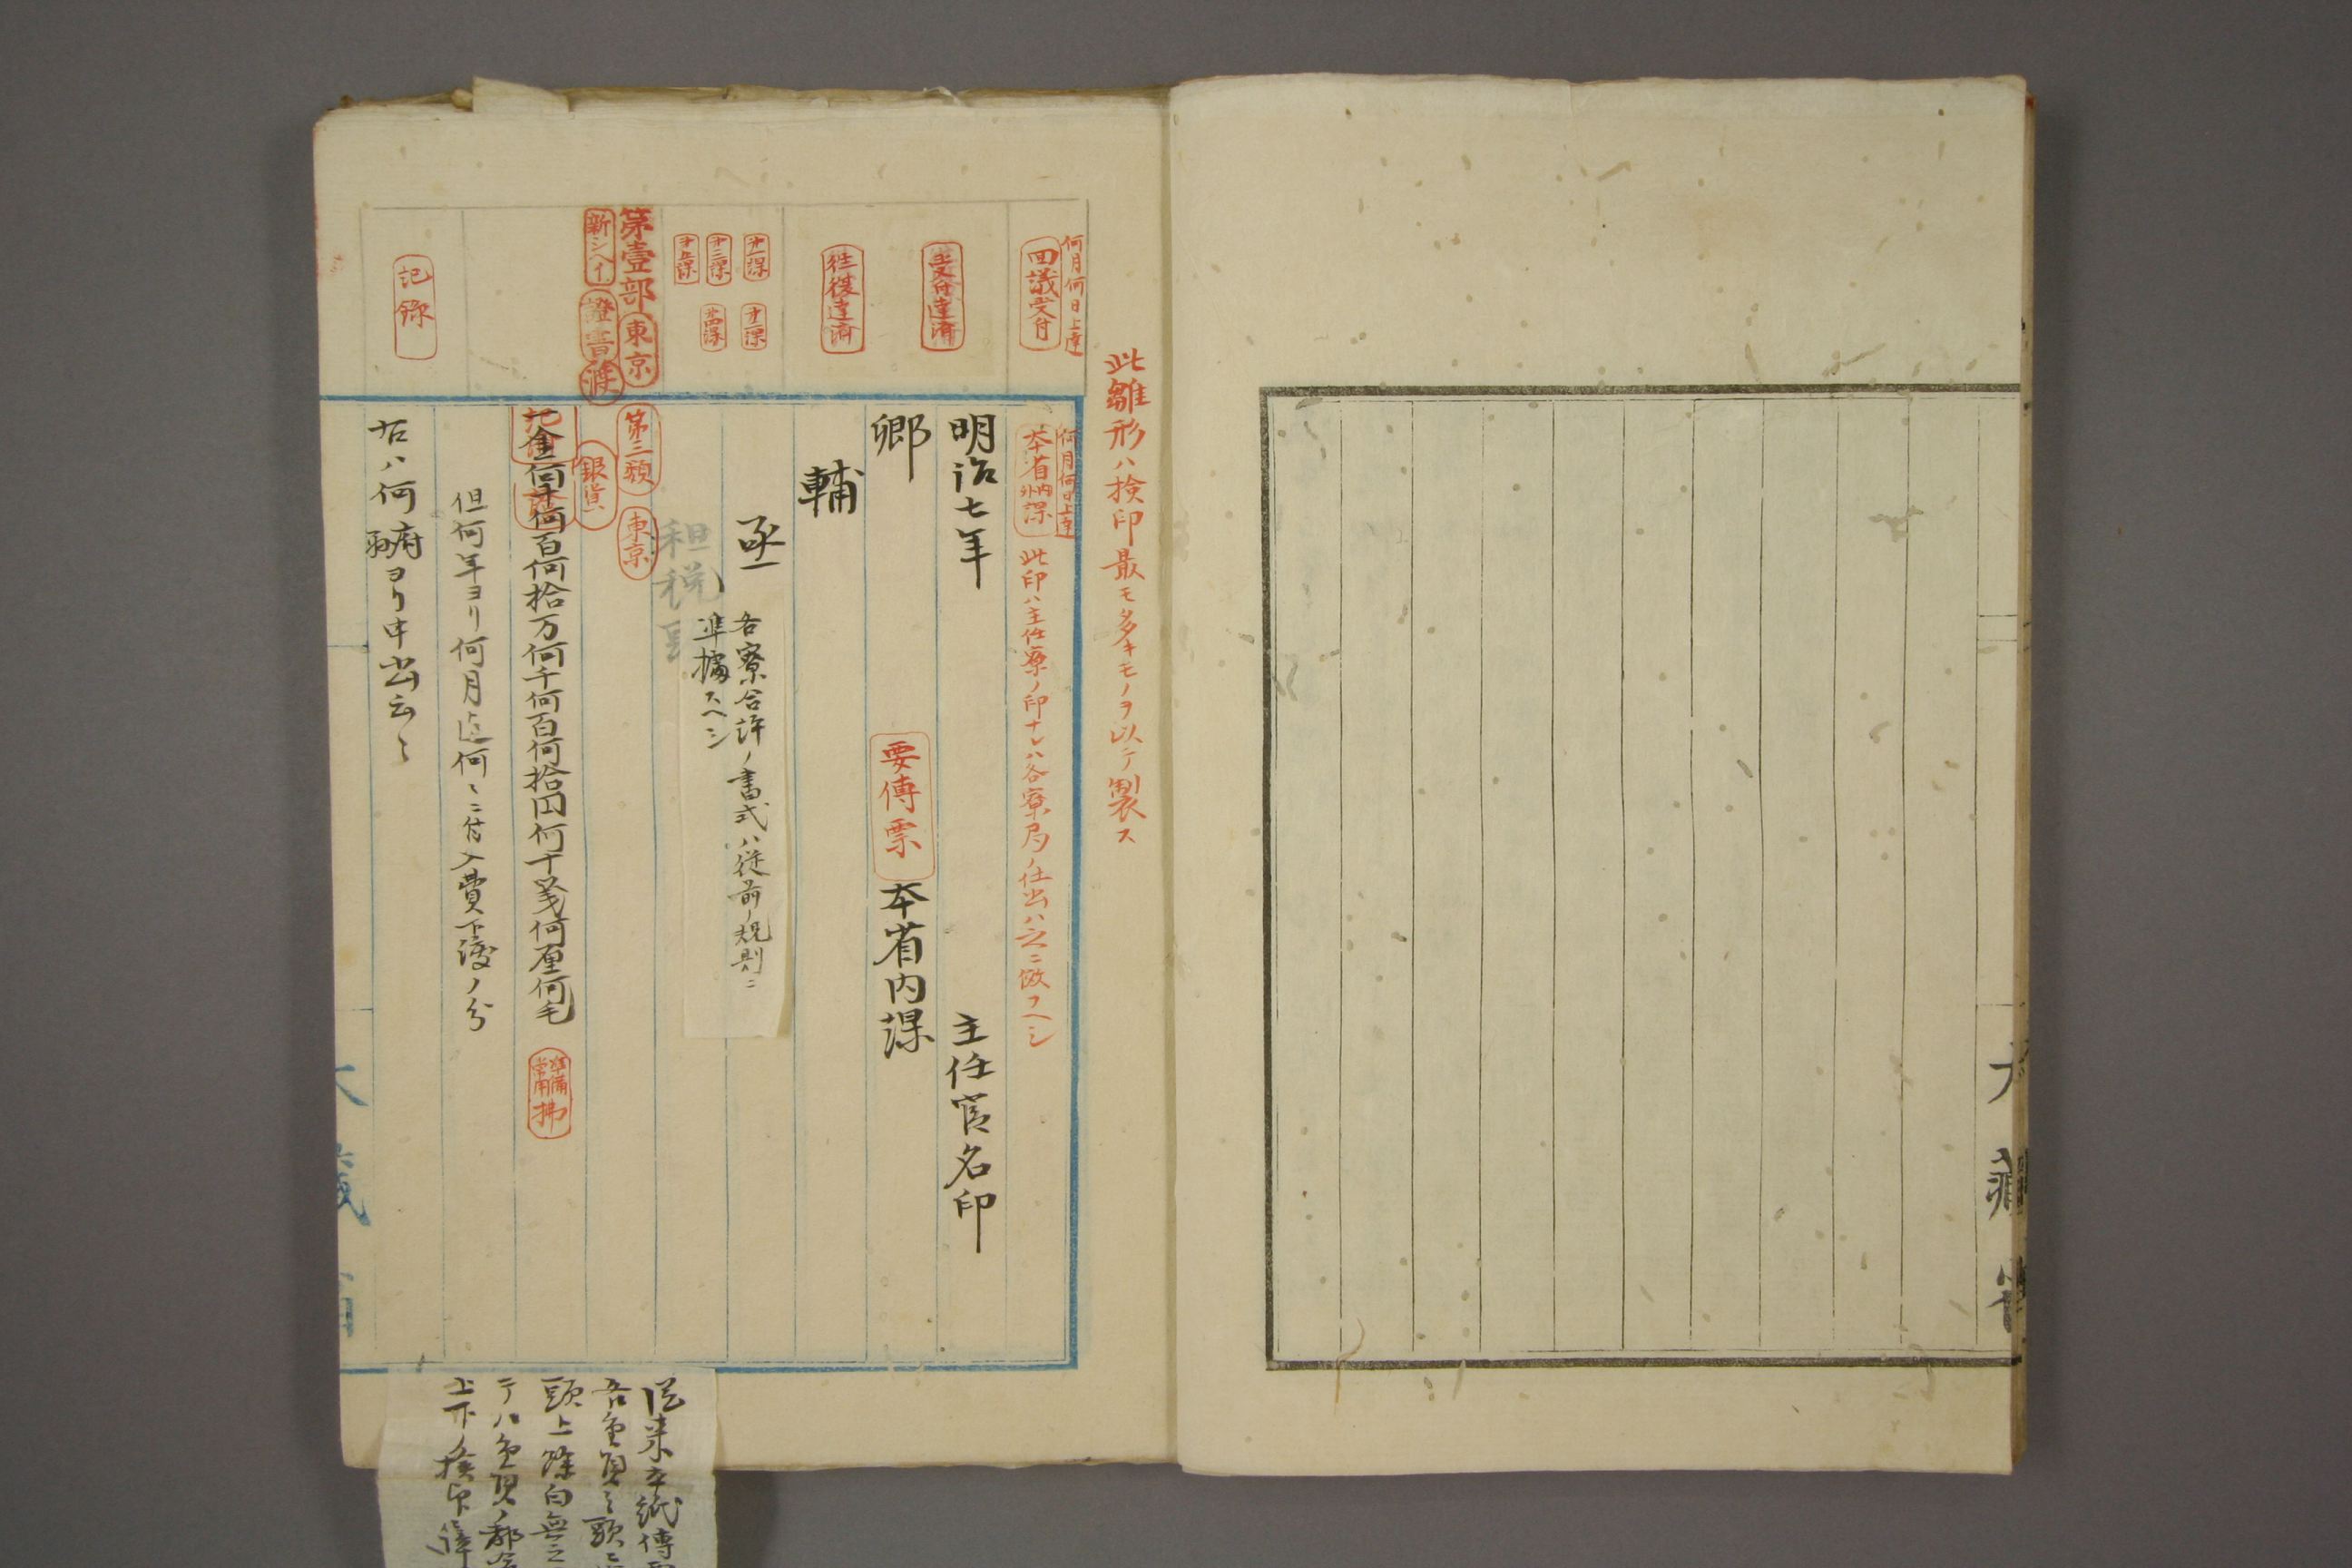 大藏省
此雛形ハ検印最モ多キモノヲ以テ製ス
何月何日上達
回議受付
受付達済
往復達済
記録
第壹部
東京
新シヘイ
證書
渡
何月何日上達
本省内課
此印ハ主任寮ノ印ナレハ各寮局ノ仕出ハ之ニ倣フヘシ
明治七年
主任官名印
卿
要傳票
本省内課
輔
丞
各寮合許ノ書式ハ従前ノ規則ニ
準據スヘシ
租税
第三類
東京
銀貨
金何千何百何拾万何千何百何拾円何十箋何厘何毛
準備
常用
拂
但何年ヨリ何月迄何〻ニ付入費下渡ノ分
右ハ何府縣ヨリ申出云〻
大藏省
従来本紙傳
各金員之頭
頭上餘白無之
テハ金員ノ都
上下ノ検印